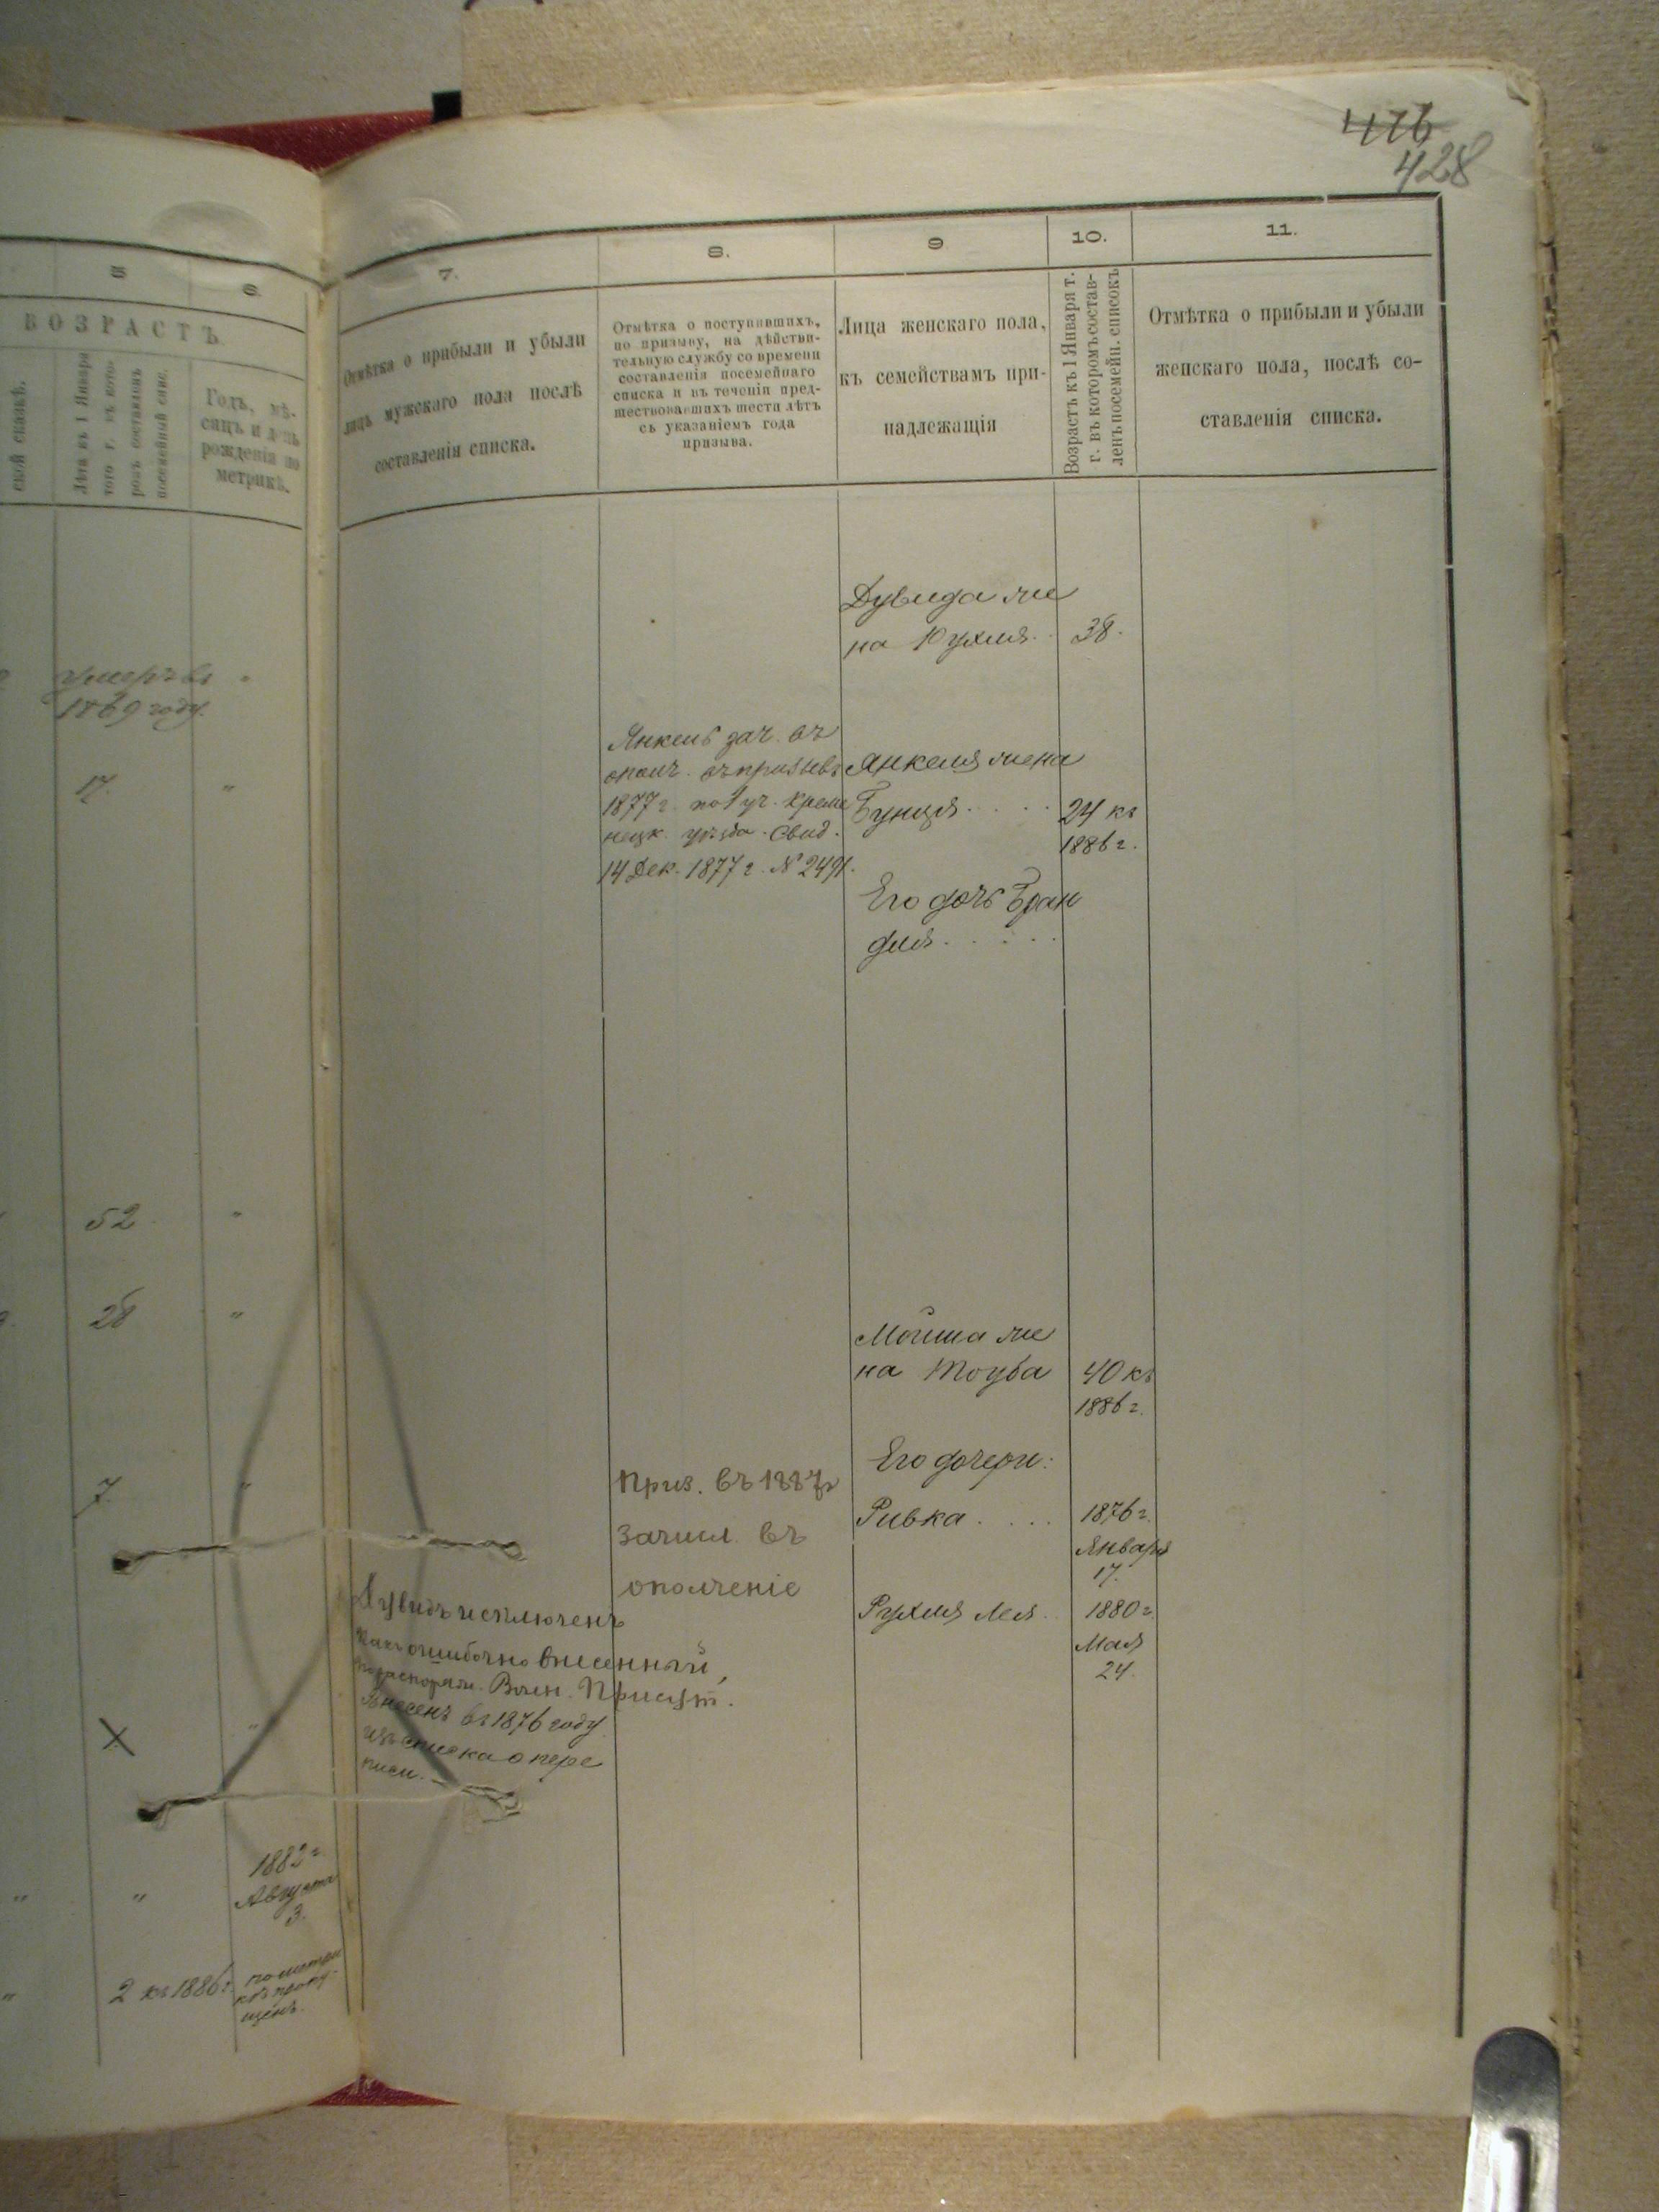 476
428
5
6.
ВОЗРАСТЪ
ской сказкѣ.
Лѣта къ 1 Января
того г. въ кото-
ромъ составленъ
посемейный спис.
Годъ, мѣ-
сяцъ и день
рожденія по
метрикѣ.
умеръ въ
1869 году.
17.
"
52
"
28
"
7.
"
X
"
"
"
1882 г.
Августа
3.
"
2 къ 1886 г.
по метри
кѣ пропу-
щенъ.
7.
8.
9
10.
11.
Отмѣтка о прибыли и убыли
лицъ мужскаго пола послѣ
составленія списка.
Отмѣтка о поступившихъ,
по призыву, на дѣйстви-
тельную службу со времени
составленія посемейнаго
списка и въ теченіи пред-
шествовавшихъ шести лѣтъ
съ указаніемъ года
призыва.
Лица женскаго пола,
къ семействамъ при-
надлежащія
Возрастъ къ 1 Января т.
г. въ которомъ состав-
ленъ посемейн. списокъ
Отмѣтка о прибыли и убыли
женскаго пола, послѣ со-
ставленія списка.
Дувида же
на Юухля.. 38.
Янкель зач. въ
ополч. въ призывъ
1877 г. по 1 уч. Креме
нецк. уѣзда. Свид.
14 Дек. 1877 г. N 2491.
Янкеля жена
Бунця.... 24 къ
1886 г.
Его дочь Бран
для.....
Мошка же
на Тоуба 40 къ
1886 г.
Его дочери:
Ривка.... 1876 г.
Января
17.
Рухля Лея. 1880 г.
Мая
24.
Приз. въ 1887 г
зачисл. въ
ополченіе
Дувидъ исключенъ
какъ ошибочно внесенный,
по распоряж. Волын. Присут.
Внесенъ въ 1876 году
изъ списка о пере
писи.